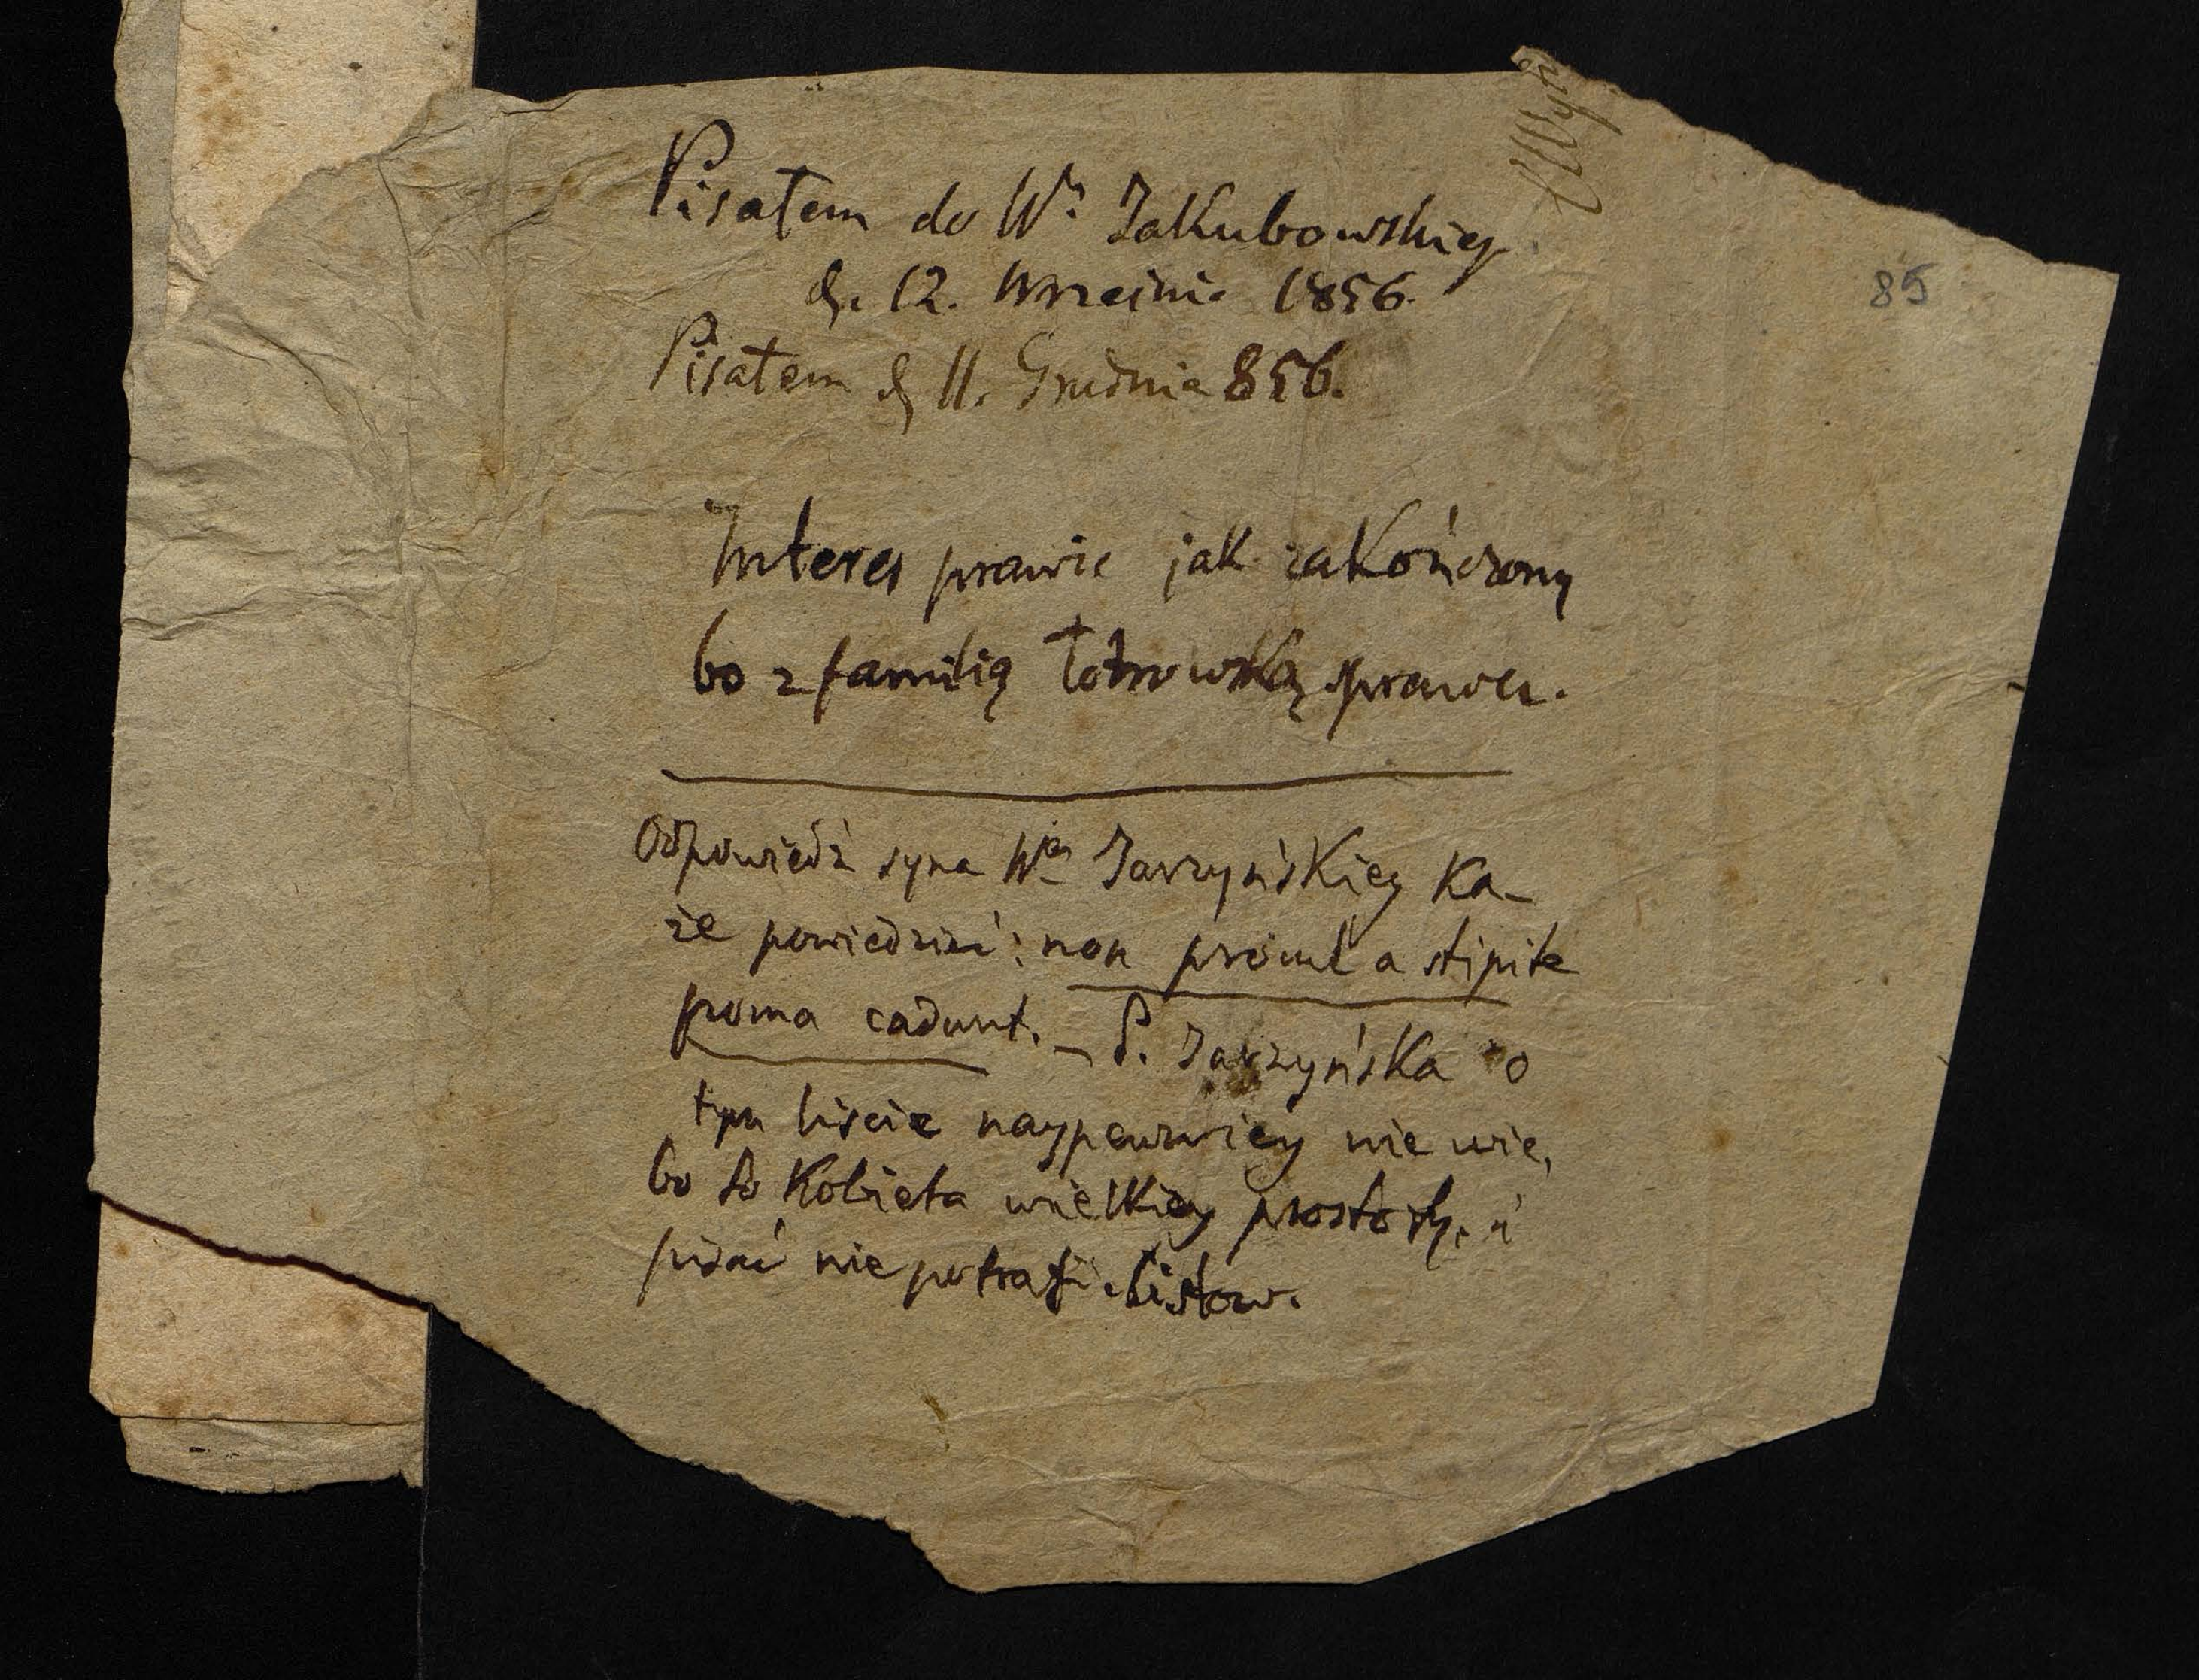 Pisałem do Wº Jakubowskieg
d. 12. Września 1856.
Pisałem d 11. Grudnia 856.
85
Interes prawie jak zakończony
bo z familią łotrowską sprawa.
Odpowiedź syna Wej Jarzyńskiey Ka-
że powiedzieć: non procul a stipite
poma cadunt. – P. Jarzyńska o
tym liście naypewniey nie wie,
bo to Kobieta wielkiey prostoty, i
pisać nie potrafi listow.